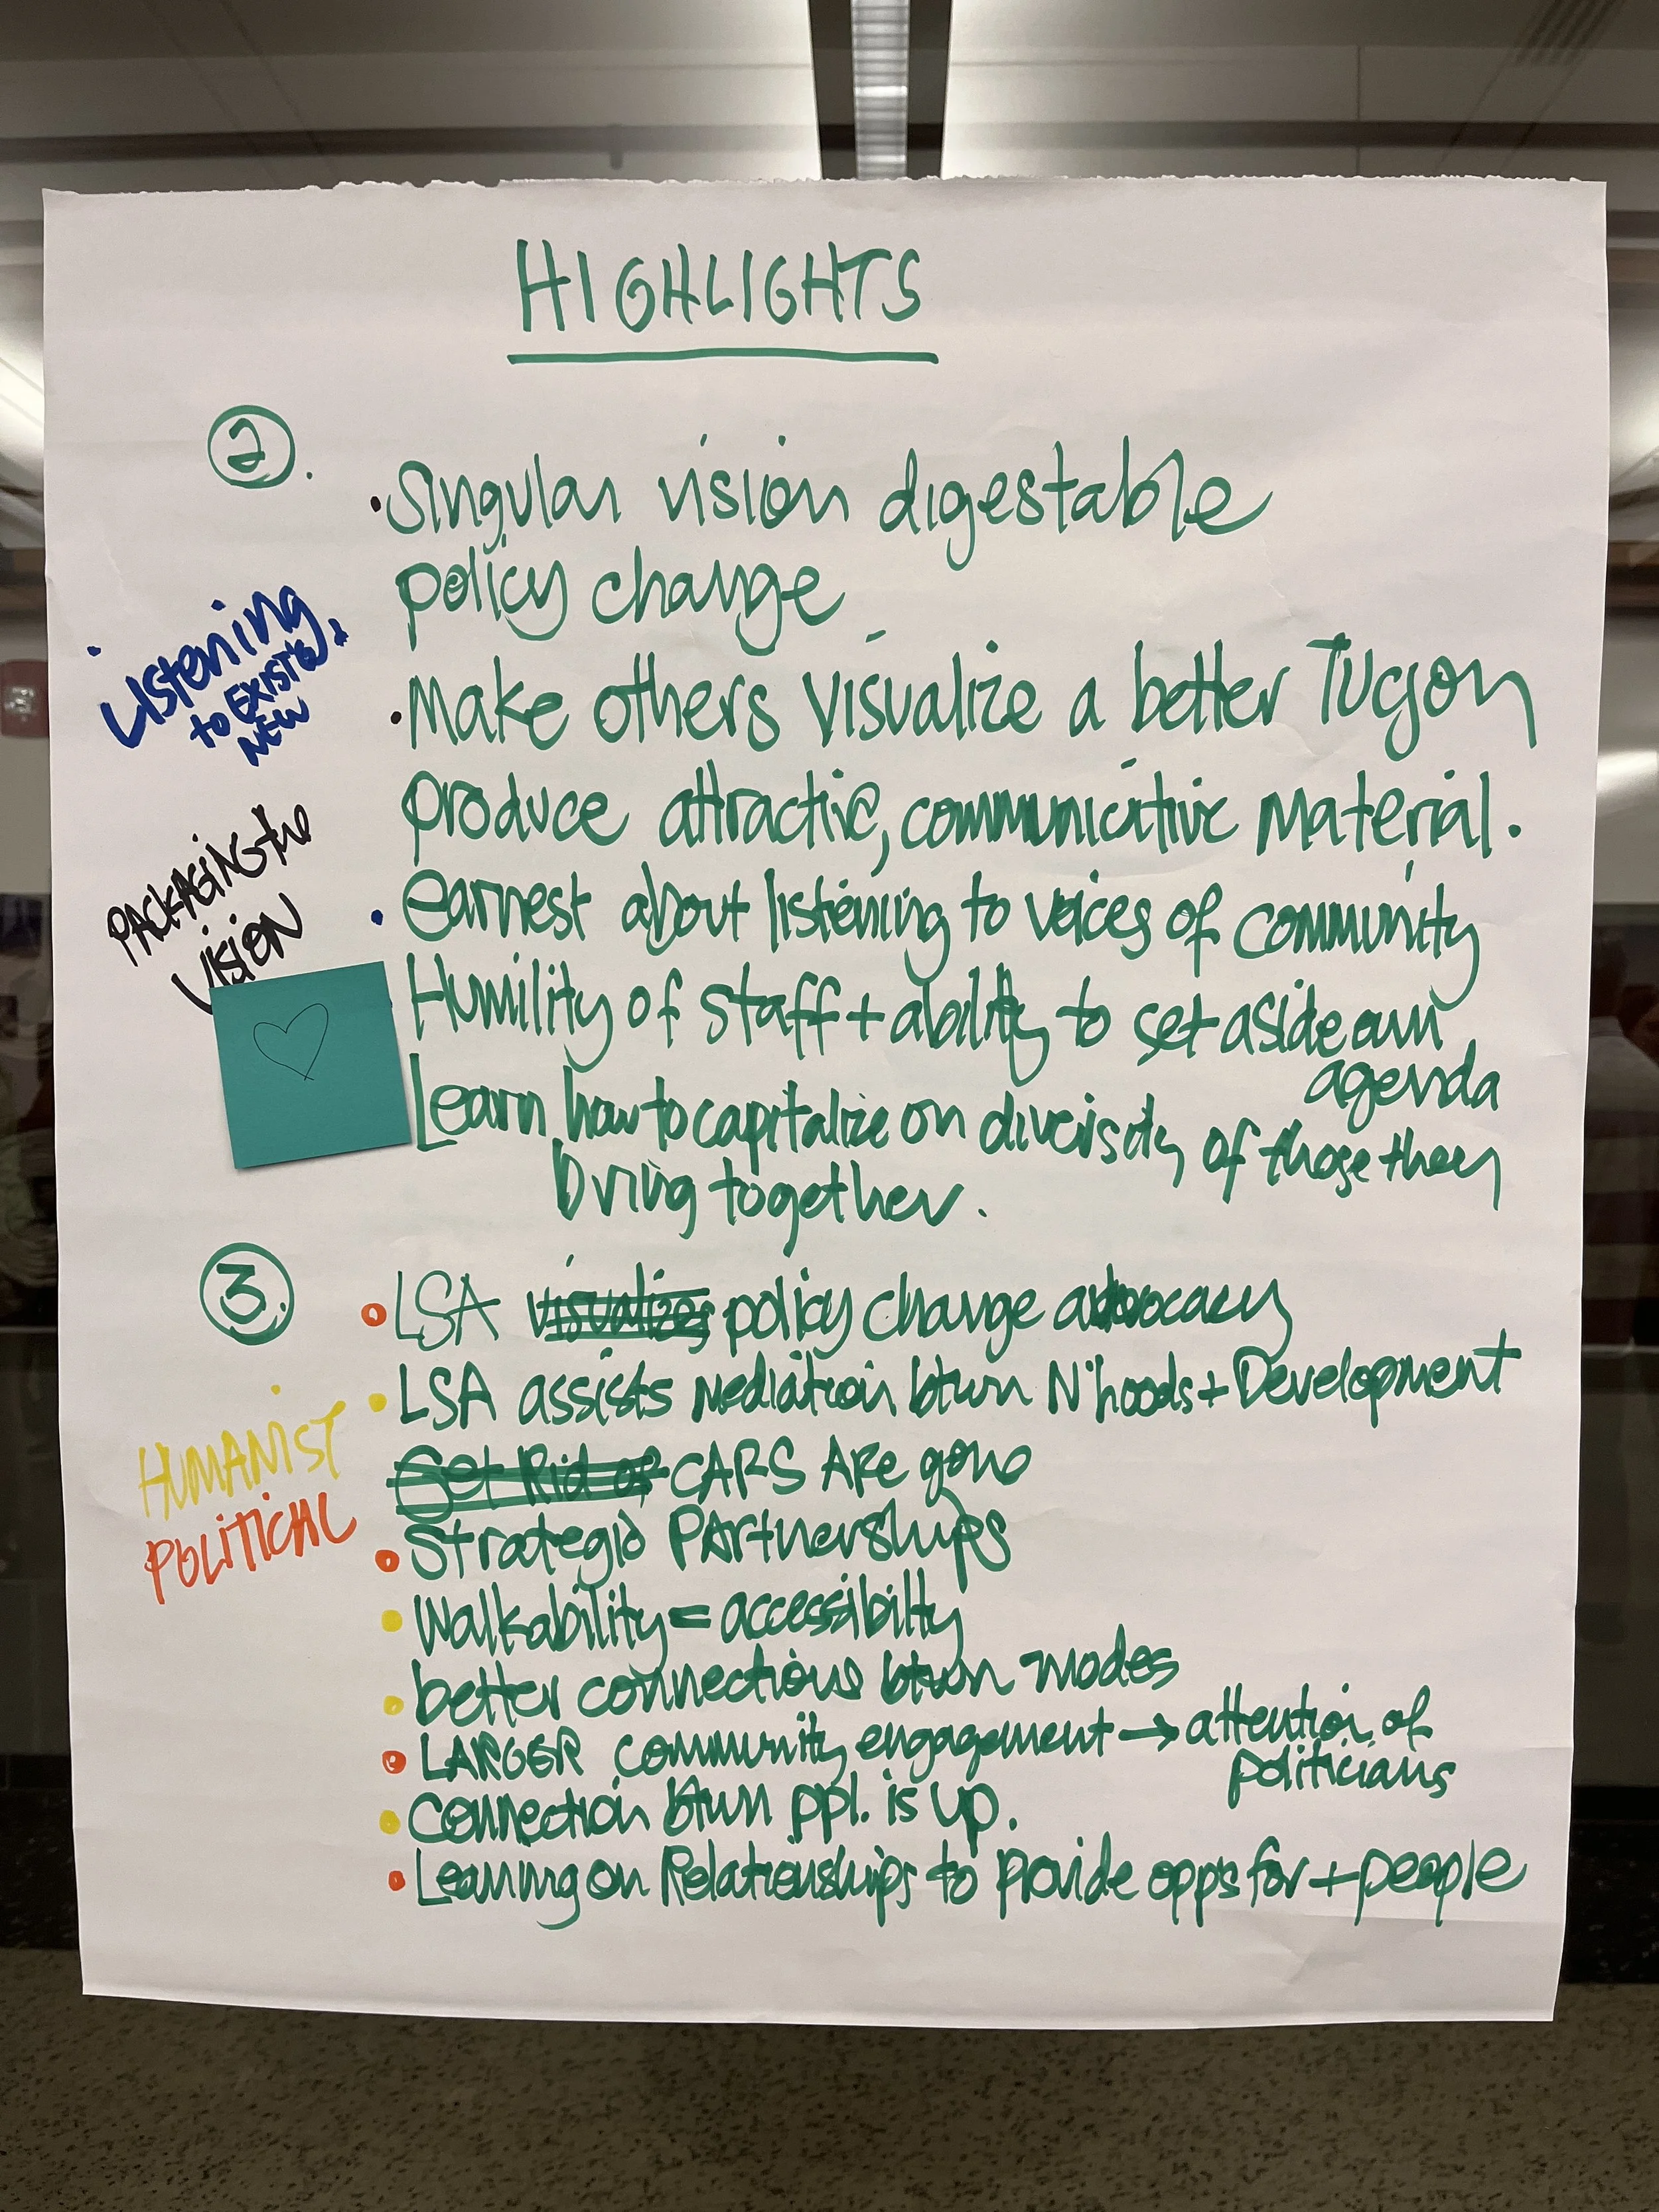 HIGHLIGHTS
2.
• Singular vision digestable
policy change
• Listening
to EXIST'G &
NEW
• Make others visualize a better Tucson
produce attractive, communicative material.
PACKAGING the
VISION
• earnest about listening to voices of community
• Humility of staff + ability to set aside own
agenda
Learn how to capitalize on diversity of those they
bring together.
3.
• LSA visualizes policy change advocacy
• LSA assists mediation btwn N'hoods + Development
• HUMANIST
POLITICAL
Get Rid of CARS ARe gone
• Strategic PARtnerships
• Walkability = accessibilty
• better connections btwn modes
• LARGER community engagement → attention of
politicians
• Connection btwn ppl. is up.
• Leaning on Relationships to provide opps for + people